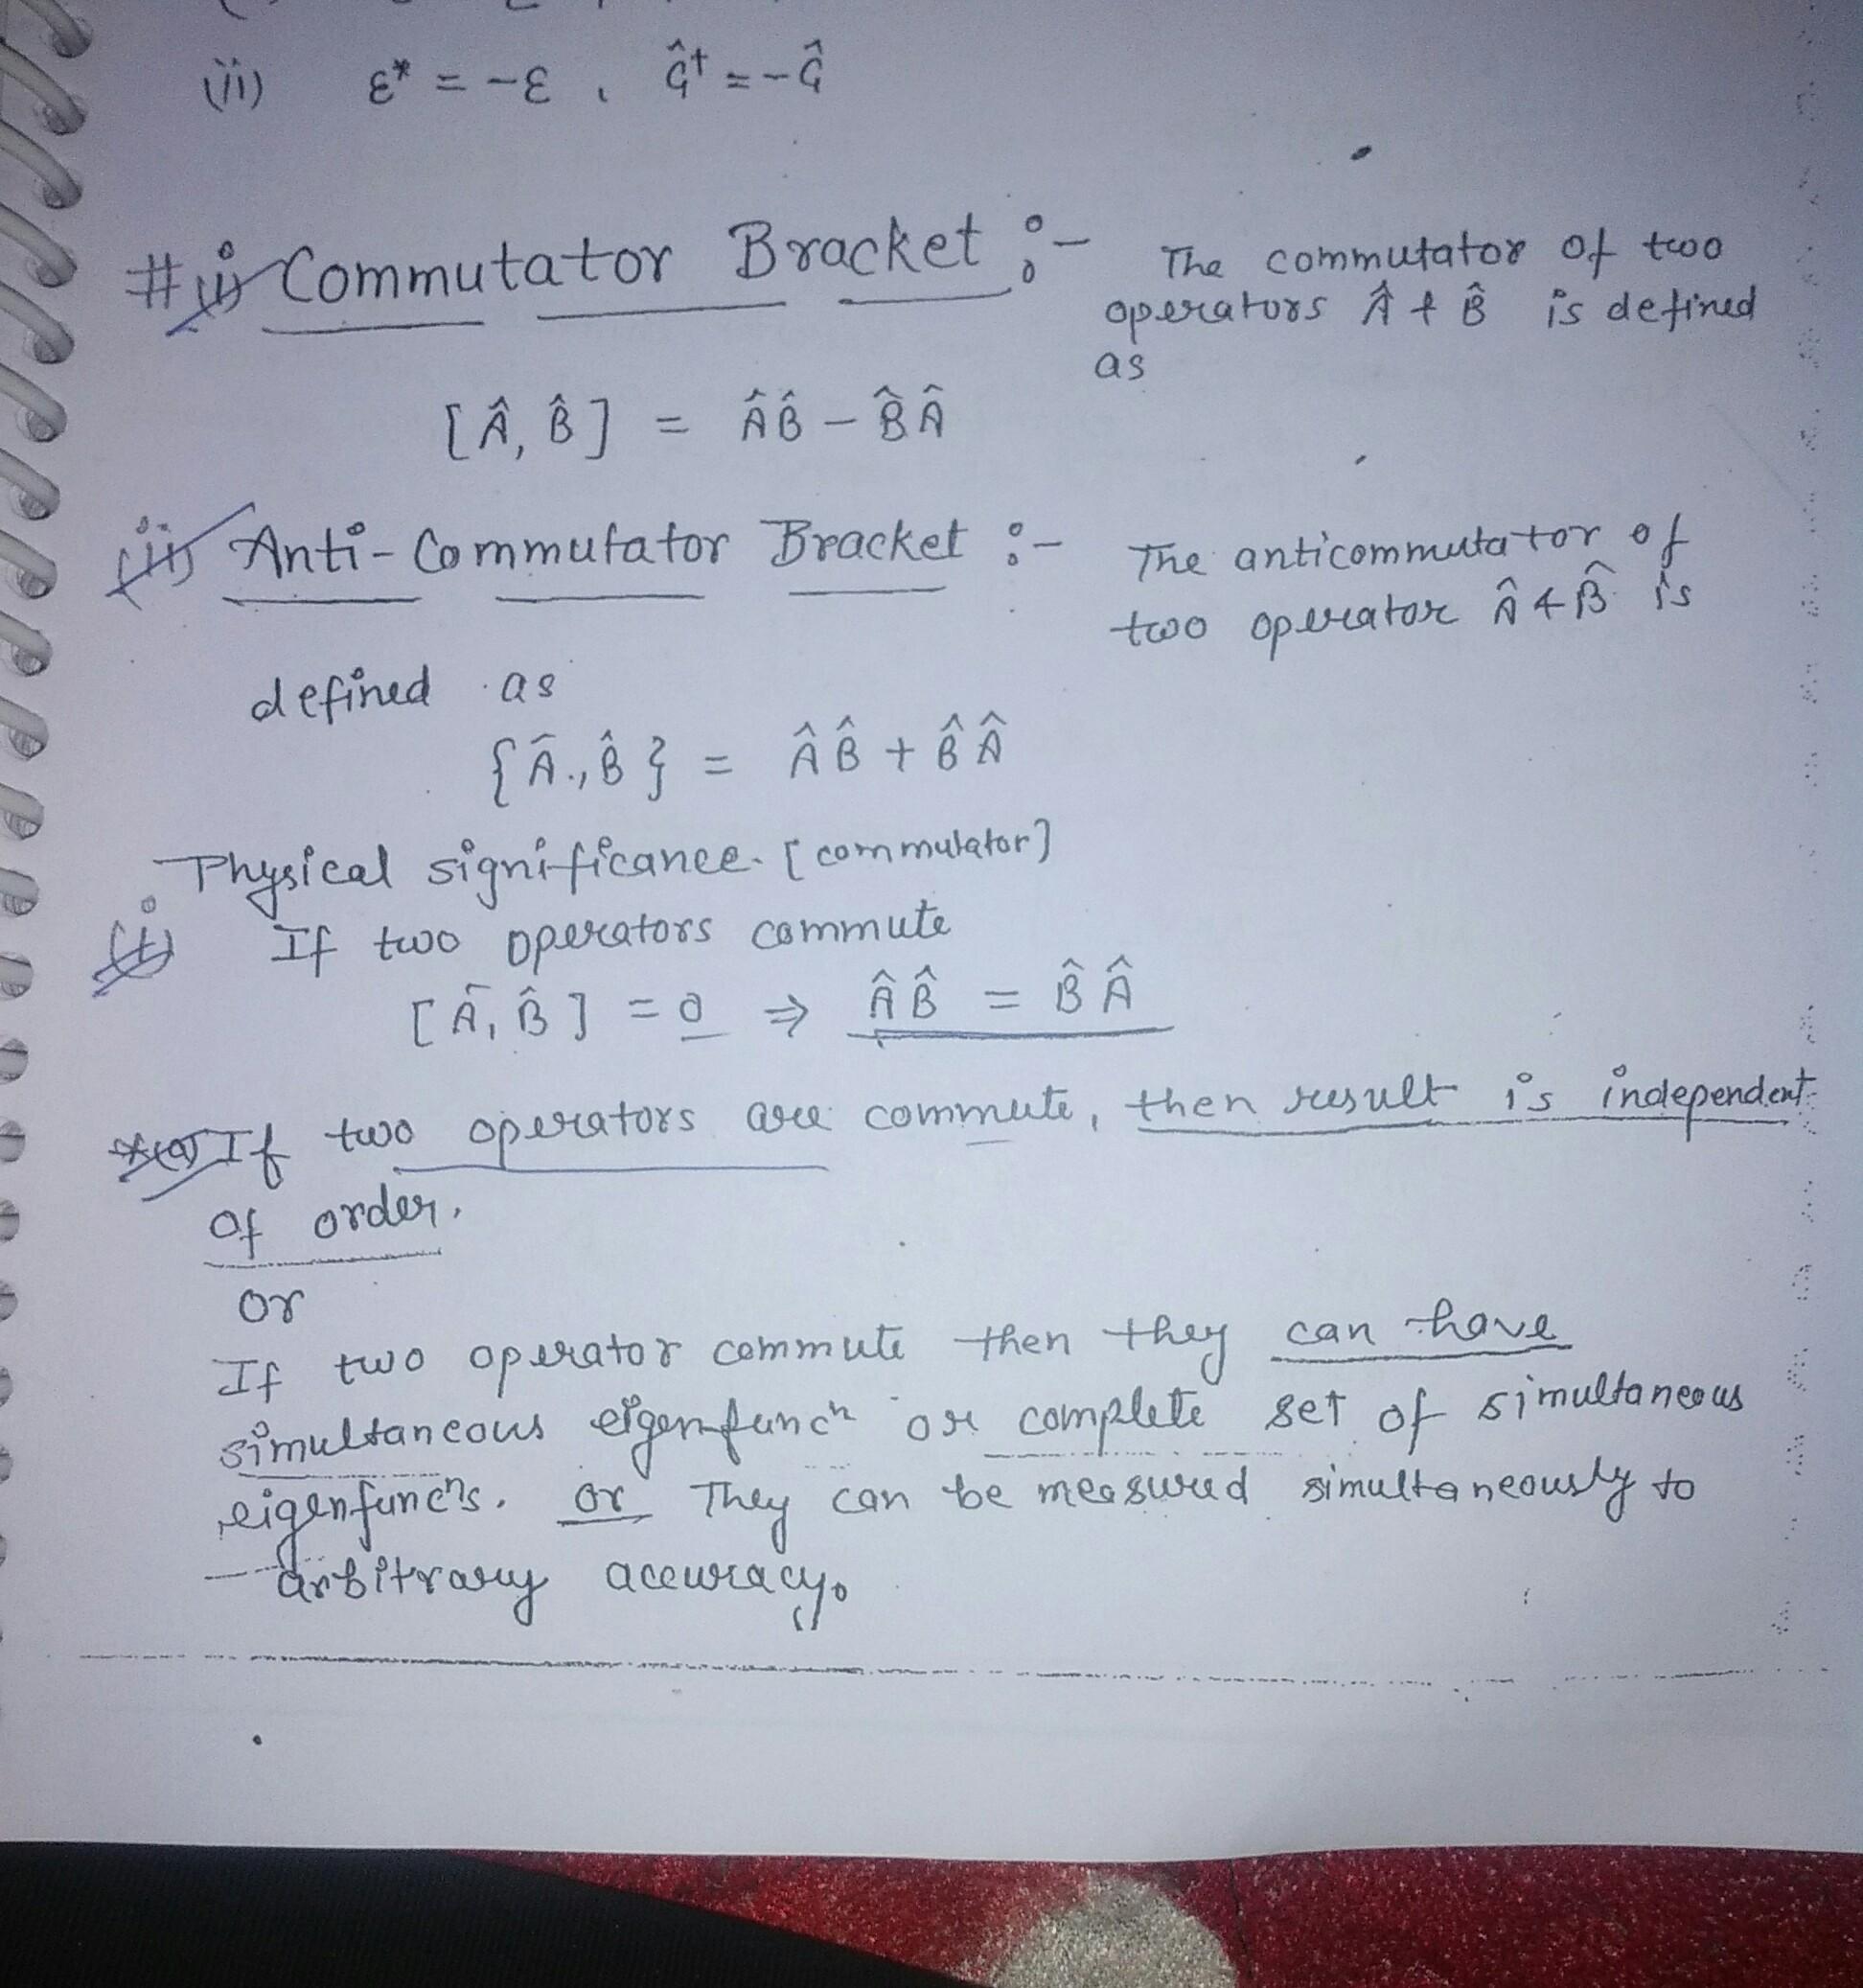 (ii) ε* = -ε , Ĝ† = -Ĝ
# (i) Commutator Bracket :- The commutator of two
operators Â & B̂ is defined
as
[Â, B̂] = ÂB̂ - B̂Â
(ii) Anti-Commutator Bracket :- The anticommutator of
two operator Â & B̂ is
defined as
{Â, B̂} = ÂB̂ + B̂Â
Physical significance [commutator]
(i) If two operators commute
[Â, B̂] = 0 ⇒ ÂB̂ = B̂Â
*(a) If two operators are commute, then result is independent
of order.
or
If two operator commute then they can have
simultaneous eigenfuncⁿ or complete set of simultaneous
eigenfuncⁿs. or They can be measured simultaneously to
arbitrary accuracy.